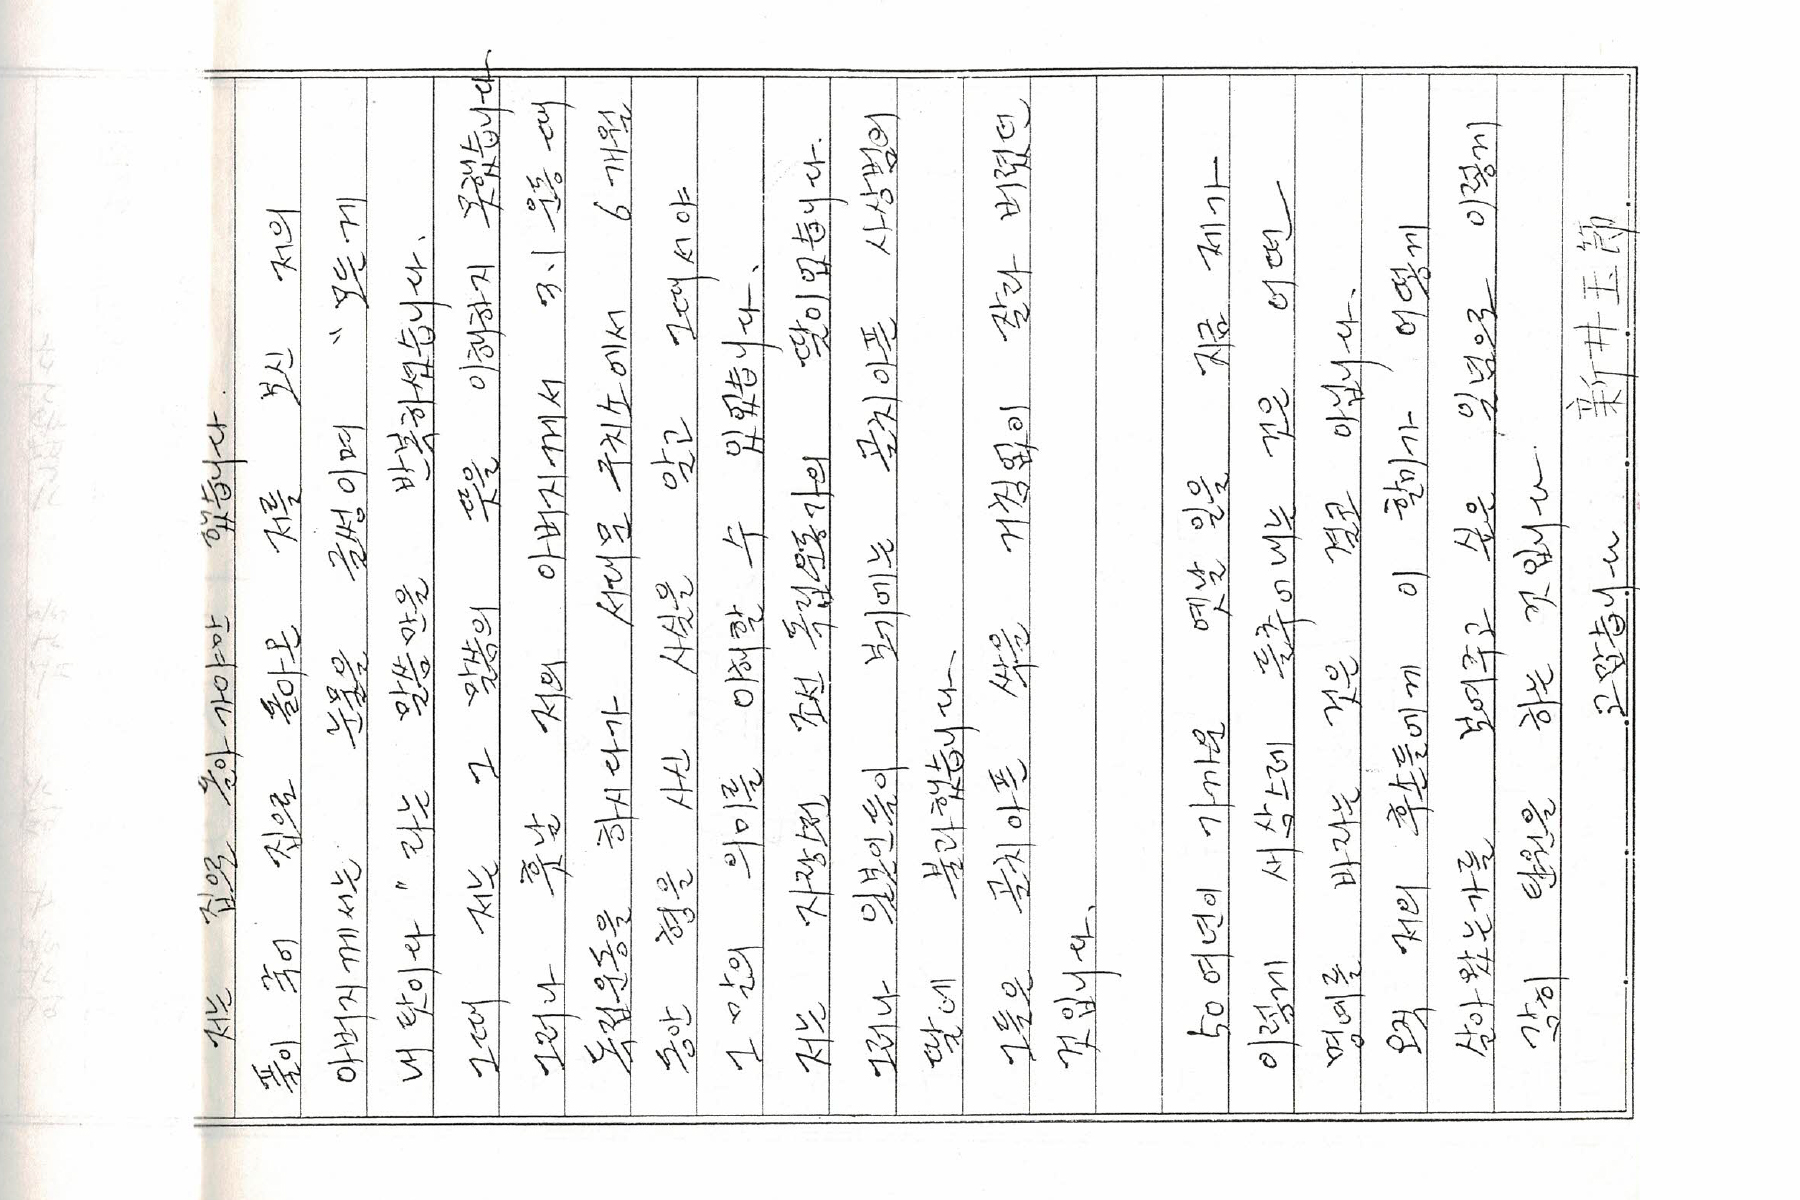 저는 집으로 돌아 가야만 했습니다.
풀이 죽어 집으로 돌아온 저를 보신 저의
아버지께서는 눈물을 글썽이며 "모든게
내 탓이다" 라는 말씀만을 반복하셨습니다.
그때 저는 그 말씀의 뜻을 이해하지 못했습니다
그러나 훗날 저의 아버지께서 3.1 운동 때
독립운동을 하시다가 서대문 구치소에서 6 개월
동안 형을 사신 사실을 알고 그때서야
그 말의 의미를 이해할 수 있었습니다.
저는 자랑찬 조선 독립운동가의 딸이었습니다.
그러나 일본인들이 보기에는 골치아픈 사상범의
딸에 불과했습니다
그들은 골치아픈 싹을 거침없이 잘라 버렸던
것입니다.
50여년이 가까운 옛날 일을 지금 제가
이렇게 새삼스레 들추어내는 것은 어떤
명예를 바라는 것은 결코 아닙니다.
오직 저의 후손들에게 이 할미가 어떻게
살아왔는가를 보여주고 싶은 일념으로 이렇게
감히 탄원을 하는 것입니다
고맙습니다
新井玉節